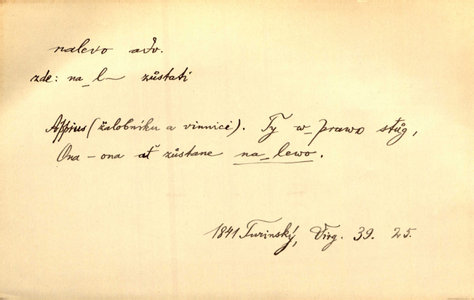 nalevo adv.
zde: na_l— zůstati
Appius (žalobníku a vinnici). Ty w_prawo stůg,
Ona – ona ať zůstane na_lewo.
1841 Turinský, Virg. 39. 25.